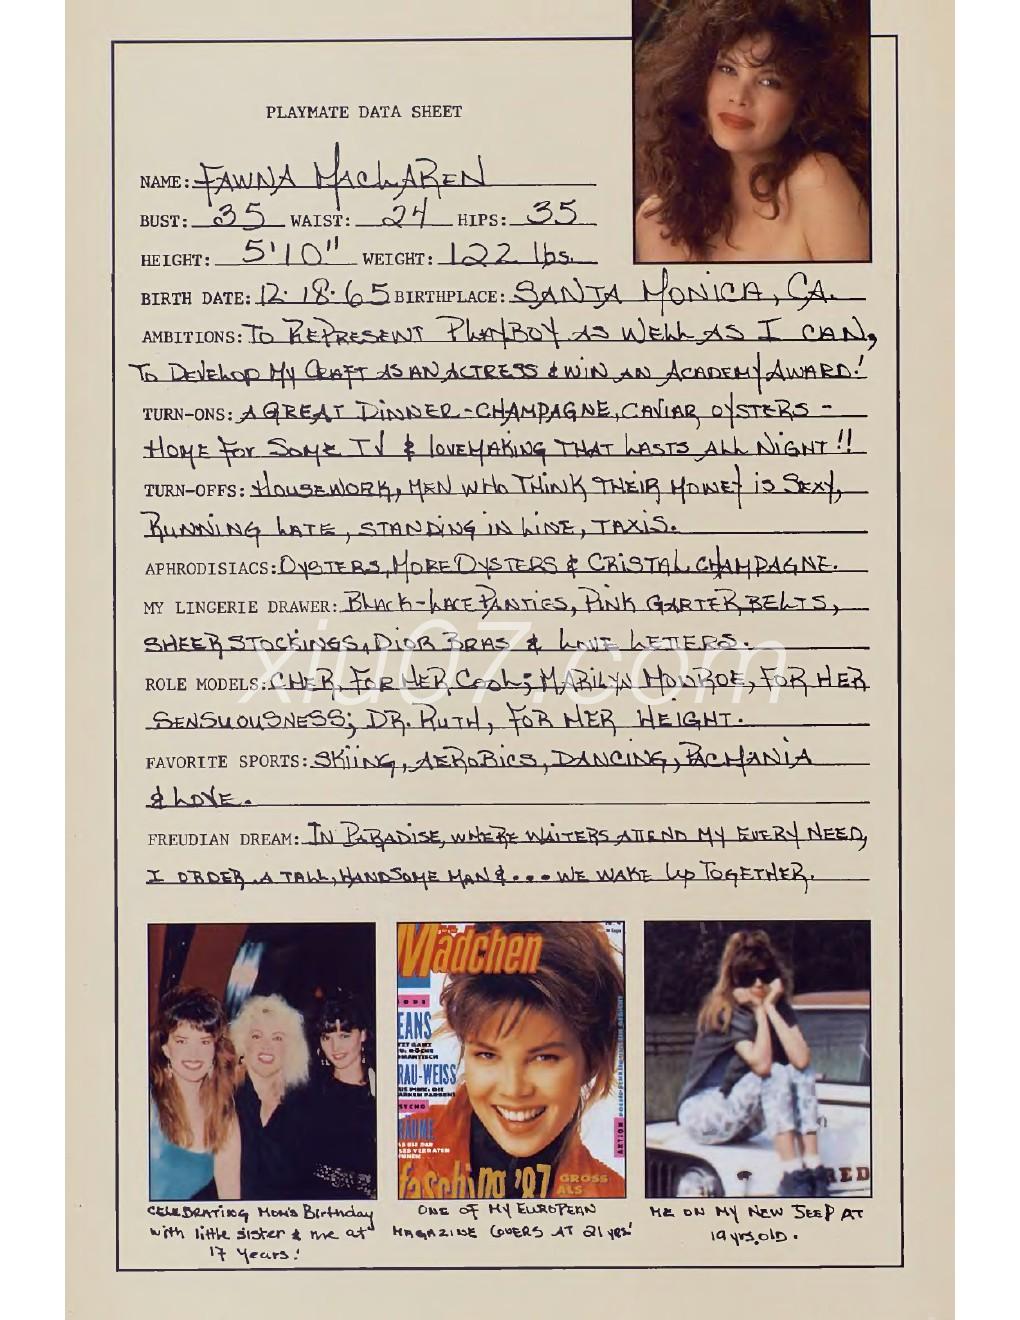 PLAYMATE DATA SHEET
NAME: FAWNA MACLAREN
BUST: 35 WAIST: 24 HIPS: 35
HEIGHT: 5'10" WEIGHT: 122 lbs.
BIRTH DATE: 12·18·65 BIRTHPLACE: SANTA MONICA, CA.
AMBITIONS: TO REPRESENT PLAYBOY AS WELL AS I CAN,
TO DEVELOP MY CRAFT AS AN ACTRESS & WIN AN ACADEMY AWARD!
TURN-ONS: A GREAT DINNER - CHAMPAGNE, CAVIAR OYSTERS -
HOME FOR SOME TV & LOVEMAKING THAT LASTS ALL NIGHT!!
TURN-OFFS: HOUSEWORK, MEN WHO THINK THEIR MONEY IS SEXY,
RUNNING LATE, STANDING IN LINE, TAXIS.
APHRODISIACS: OYSTERS, MORE OYSTERS & CRISTAL CHAMPAGNE.
MY LINGERIE DRAWER: BLACK-LACE PANTIES, PINK GARTER BELTS,
SHEER STOCKINGS, DIOR BRAS & LOVE LETTERS.
xiu07.com
ROLE MODELS: CHER, FOR HER COOL; MARILYN MONROE, FOR HER
SENSUOUSNESS; DR. RUTH, FOR HER HEIGHT.
FAVORITE SPORTS: SKIING, AEROBICS, DANCING, PACMANIA
& LOVE.
FREUDIAN DREAM: IN PARADISE, WHERE WAITERS ATTEND MY EVERY NEED,
I ORDER A TALL, HANDSOME MAN & ... WE WAKE UP TOGETHER.
Mädchen
EANS
RAU-WEISS
PSYCHO
RÄUME
AKTION
fasching '87
GROSS
ALS
RED
CELEBRATING MOM'S BIRTHDAY
with little sister & me at
17 years!
ONE OF MY EUROPEAN
MAGAZINE COVERS AT 21 yrs!
ME ON MY NEW JEEP AT
19 yrs. old.